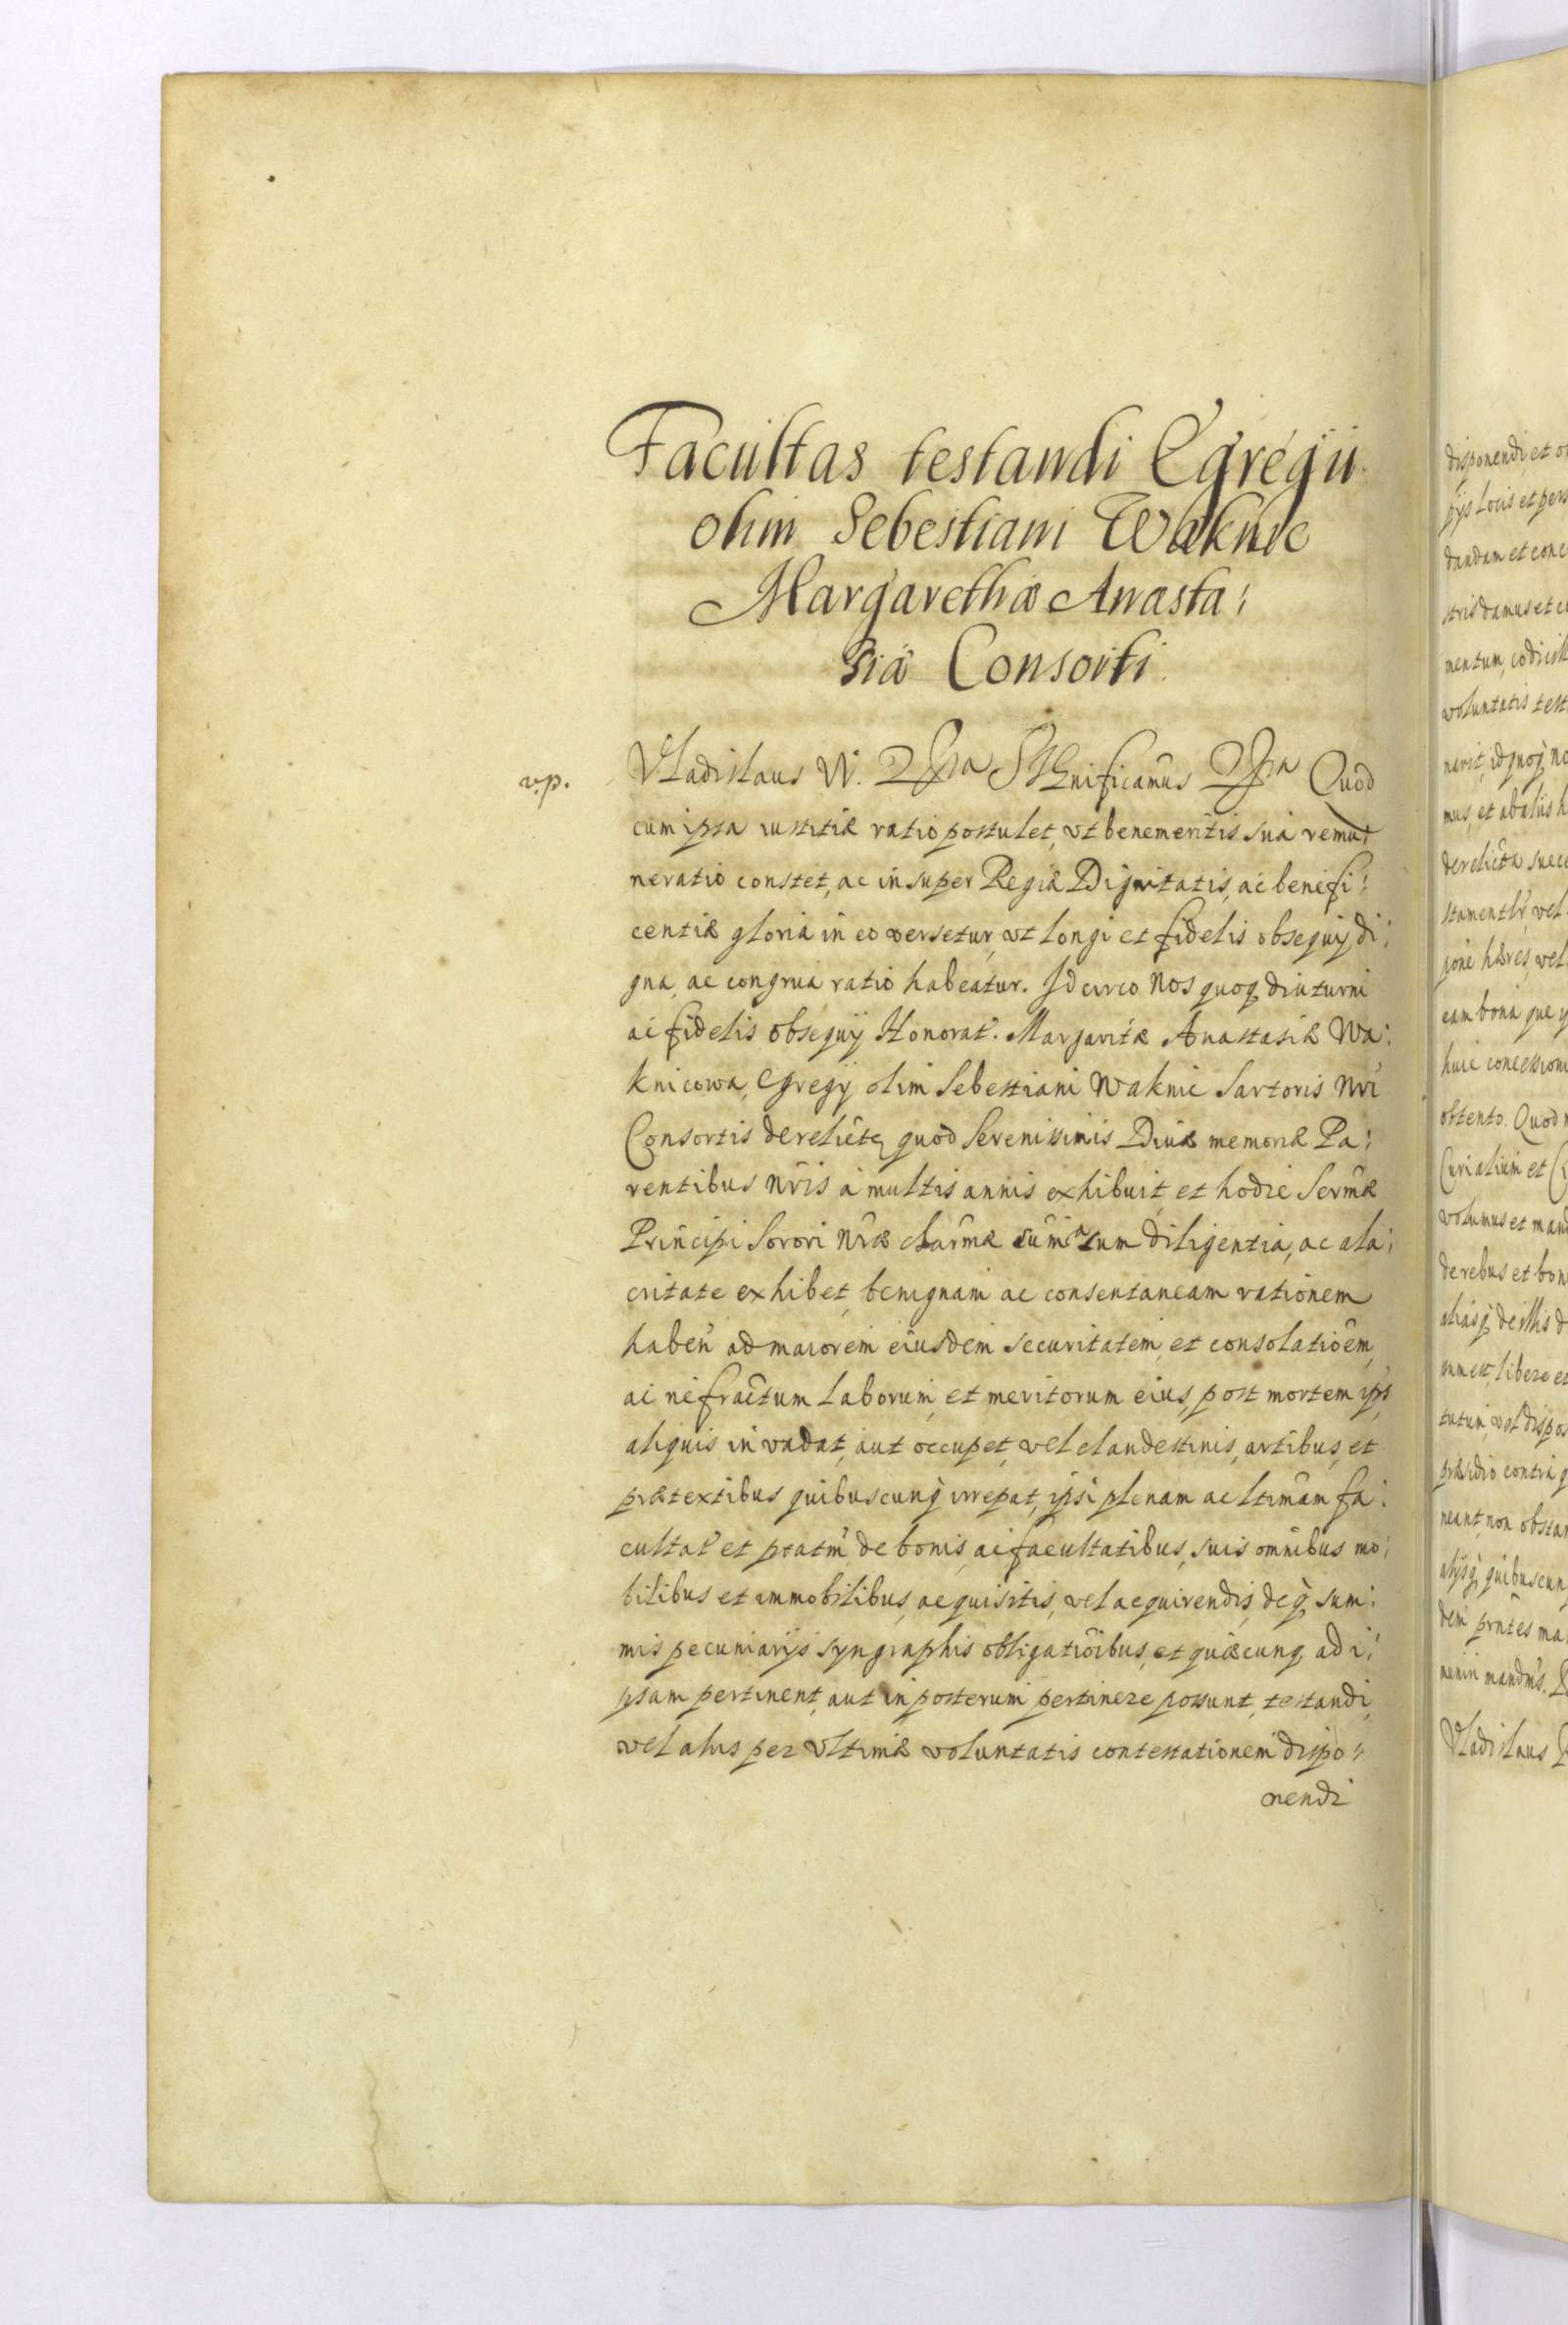 Facultas testandi Egregii
olim Sebestiani Waknic
Margarethæ Anasta:
siæ Consorti.
v.p.
Vladislaus IV. Significamus Quod
cum ipsa iustitiæ ratio postulet, vt benemeritis sua remu
neratio constet, ac insuper Regiæ Dignitatis, ac benefi:
centiæ gloria in eo versetur, vt longi et fidelis obsequij di:
gna, ac congrua ratio habeatur. Idcirco Nos quoq diuturni
ac fidelis obsequij Honorat. Margaritæ Anastasiæ Wa:
knicowa, Egregij olim Sebestiani Waknic Sartoris Nri
Consortis derelictę, quod Serenissimis Diuæ memoriæ Pa:
rentibus nris a multis annis exhibuit, et hodie Sermæ
Principi Sorori Nræ charmæ suma cum diligentia, ac ala:
critate exhibet, benignam ac consentaneam rationem
haben ad maiorem eiusdem securitatem, et consolatioem,
ac ne fructum laborum, et meritorum eius, post mortem ips
aliquis invadat, aut occupet, vel clandestinis, artibus, et
prætextibus quibuscunq irrepat, ipsi plenam ac ltimam fa:
cultat et ptatm de bonis, ac facultatibus, suis omnibus mo:
bilibus et immobilibus, acquisitis, vel acquirendis, deq sum:
mis pecuniarijs syngraphis obligatioibus, et quæcunq ad i:
psam pertinent, aut in posterum pertinere possunt, testandi,
vel alias per vltimæ voluntatis contestationem dispo:
nendi
disponendi, et
pijs locis et pers
dandam et conc
stris damus et
mentum, codicill
voluntatis test
narit, idquoq no
mus, et ab aliis h
derelicta succ
stamentlr, vel
hæres, vel
eam bona que
huic concessioni
obtento. Quod
Curialium et
volumus et mand
de rebus et bon
aliasq de illis d
libere et
vel dispos
præsidio contra q
neant, non obstan
alijsq quibuscun
dem prntes ma
mandms.
Vladislaus